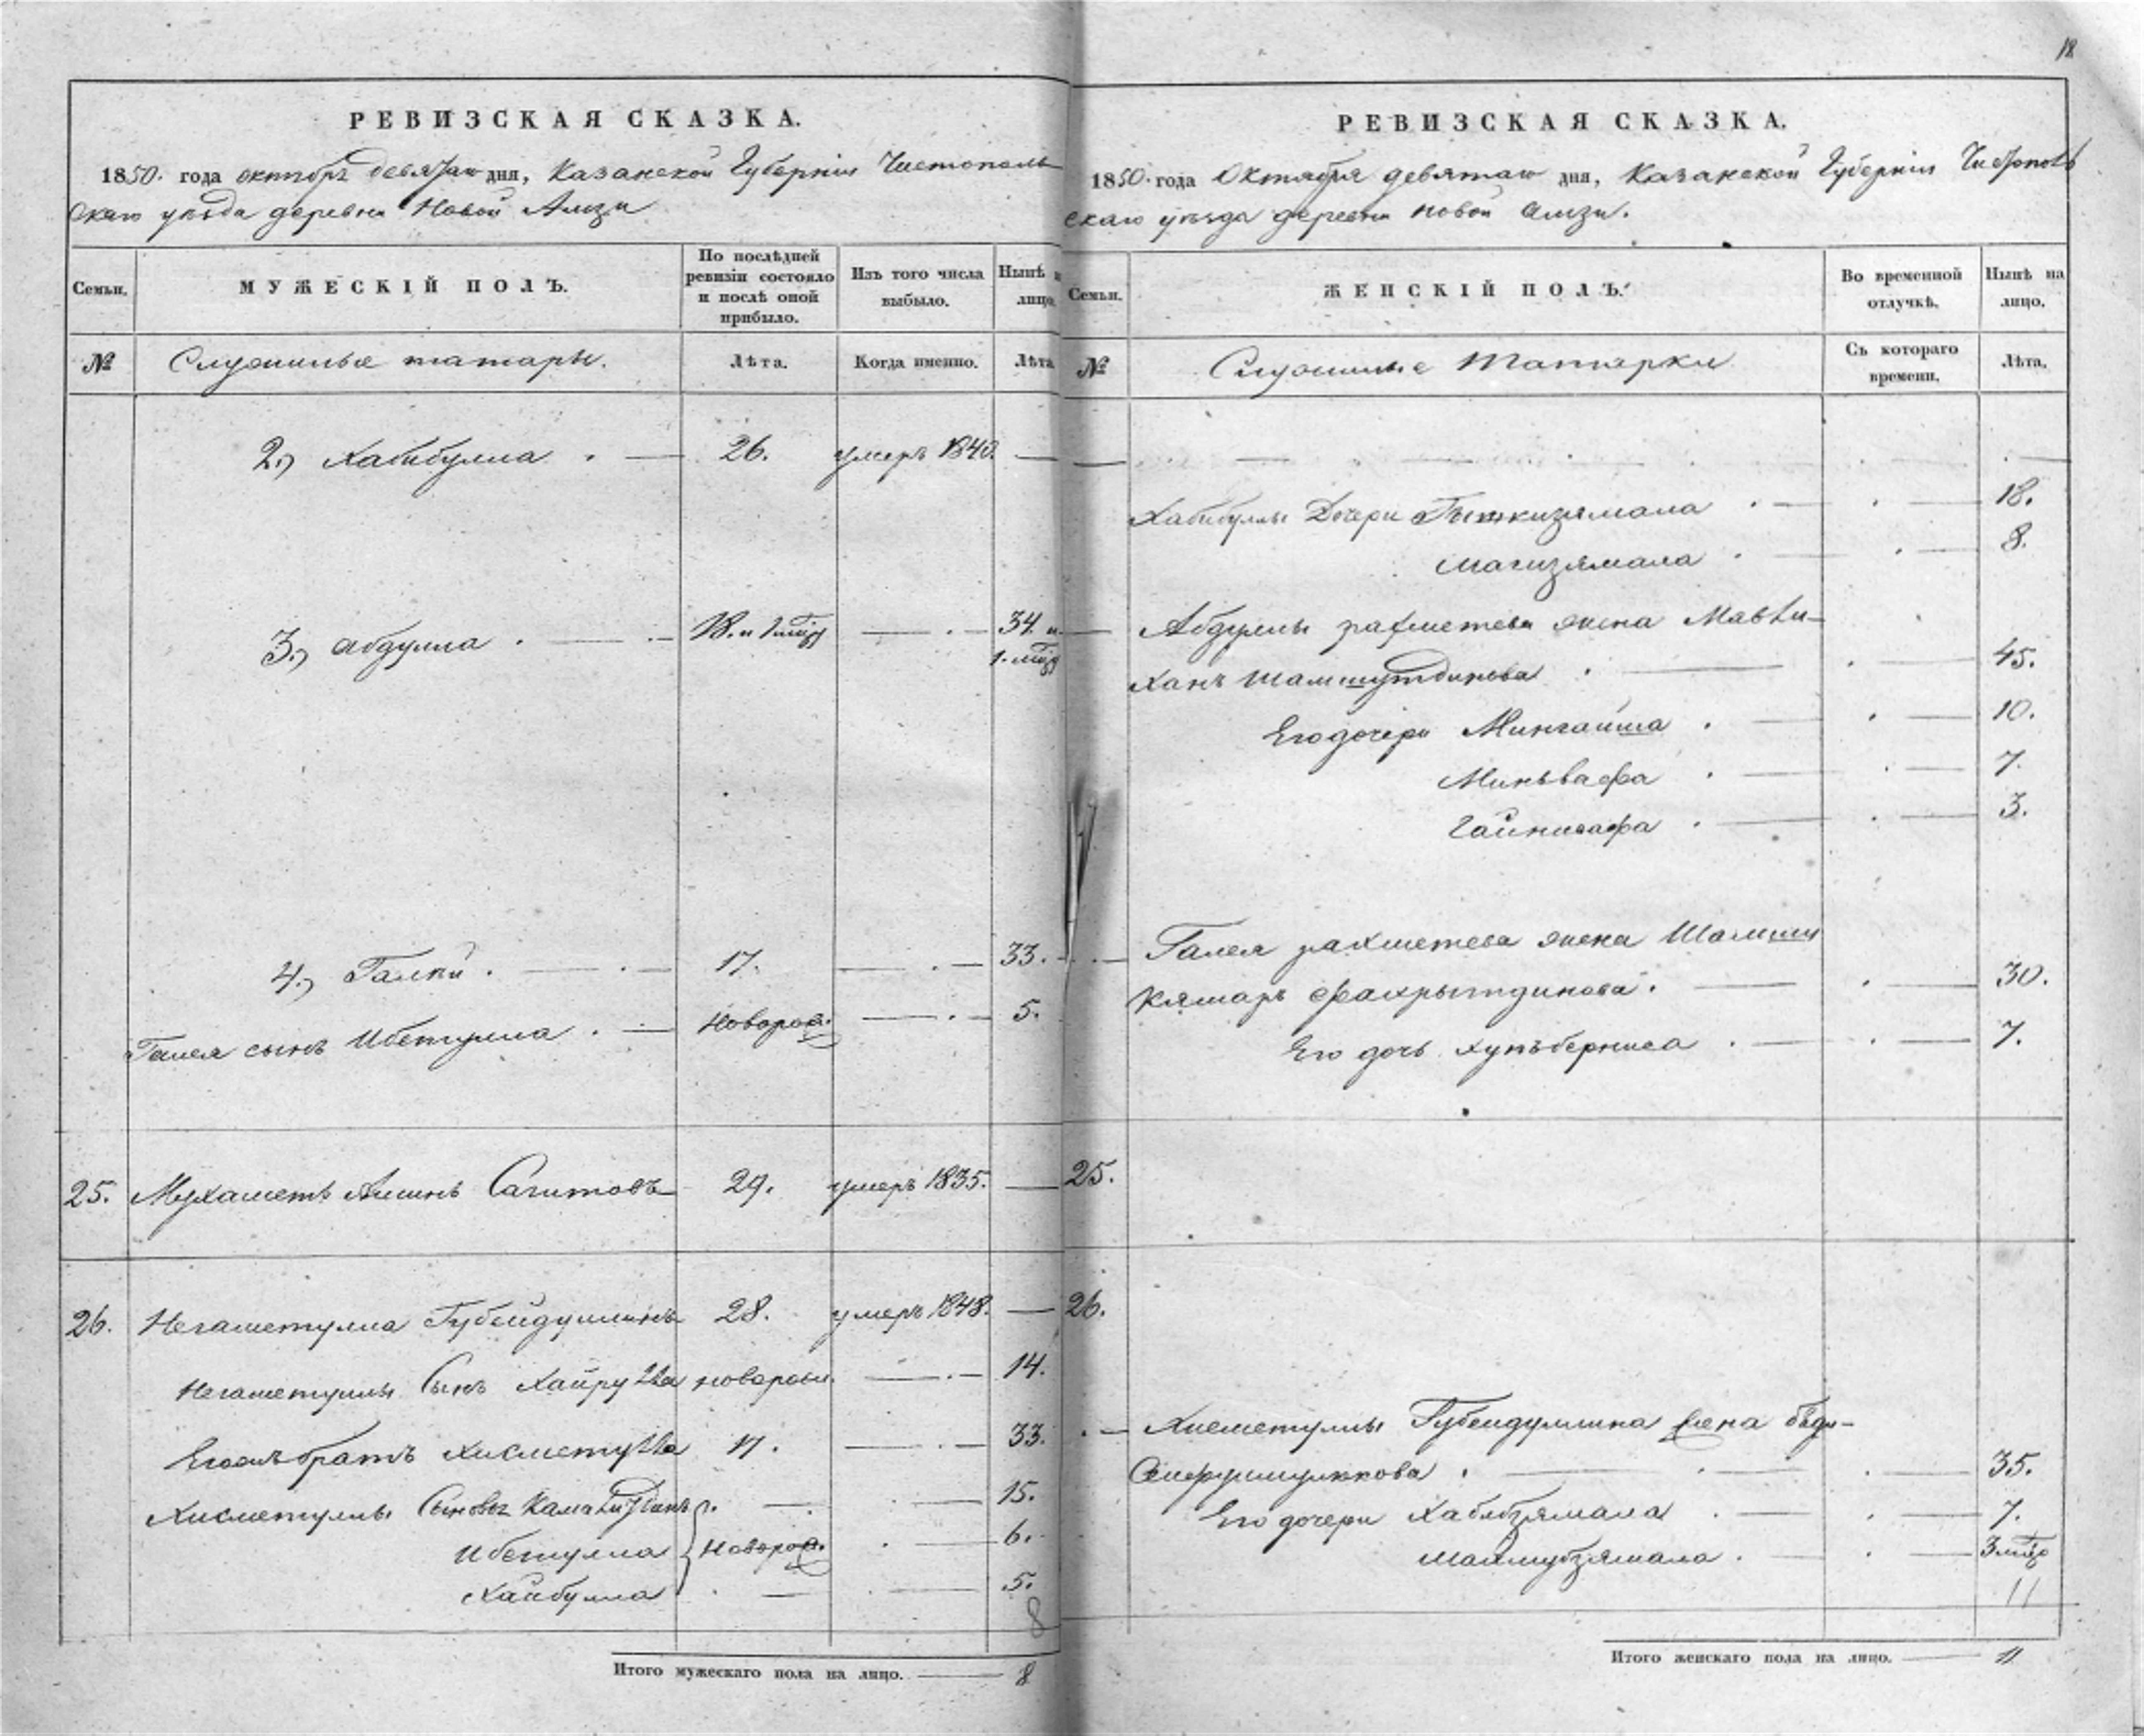 18
РЕВИЗСКАЯ СКАЗКА.
1850. года октябръ девятаго дня, Казанской Губерніи Чистополь
скаго уѣзда деревни Новой Амзи
Семьи.
МУЖЕСКІЙ ПОЛЪ.
По послѣдней ревизіи состояло и послѣ оной прибыло.
Изъ того числа выбыло.
Нынѣ н лицо.
№
Служилые татары.
Лѣта.
Когда именно.
Лѣта
2.) Хабибулла . — 26. умеръ 1840. —
3.) Абдулла . — 18. и 1 — . — 34. и
1.
4.) Галѣй . — . — 17. — . — 33.
Галея сынъ Ибетулла . — Новорож. — . — 5.
25. Мухаметъ Аминъ Сагитовъ 29. умеръ 1835. —
26. Негаметулла Губейдуллинъ 28. умеръ 1848. —
Негаметуллы Сынъ Хайрулла новорож. — . — 14.
Его братъ Хисметулла 17. — . — 33.
Хисметуллы Сыновья Камалитдинъ . — . — 15.
Ибетулла Новорож. . — 6.
Хайбулла . — . — 5.
8
Итого мужескаго пола на лицо. — 8
РЕВИЗСКАЯ СКАЗКА.
1850. года Октября девятаго дня, Казанской Губерніи Чистополь
скаго уѣзда деревни новой амзи.
Семьи.
ЖЕНСКІЙ ПОЛЪ.
Во временной отлучкѣ.
Нынѣ на лицо.
№
Служилые Татарки
Съ котораго времени.
Лѣта.
Хабибуллы Дочери . — . — 18.
Магизямала . — . — 8.
Абдуллы рахметева жена Мавлю-
Ханъ Шамшутдинова . — . — 45.
Его дочери Мингайша . — . — 10.
Миньвафа . — . — 7.
Гайнивафа . — . — 3.
Галея рахметева жена Шамши
Кямаръ Фахрытдинова . — . — 30.
Его дочь Хупьберниса . — . — 7.
25.
26.
Хисметуллы Губейдуллина жена
. — . — 35.
Его дочери Хабибзямала . — . — 7.
Махмубзямала . — . — 3
11
Итого женскаго пола на лицо. — 11